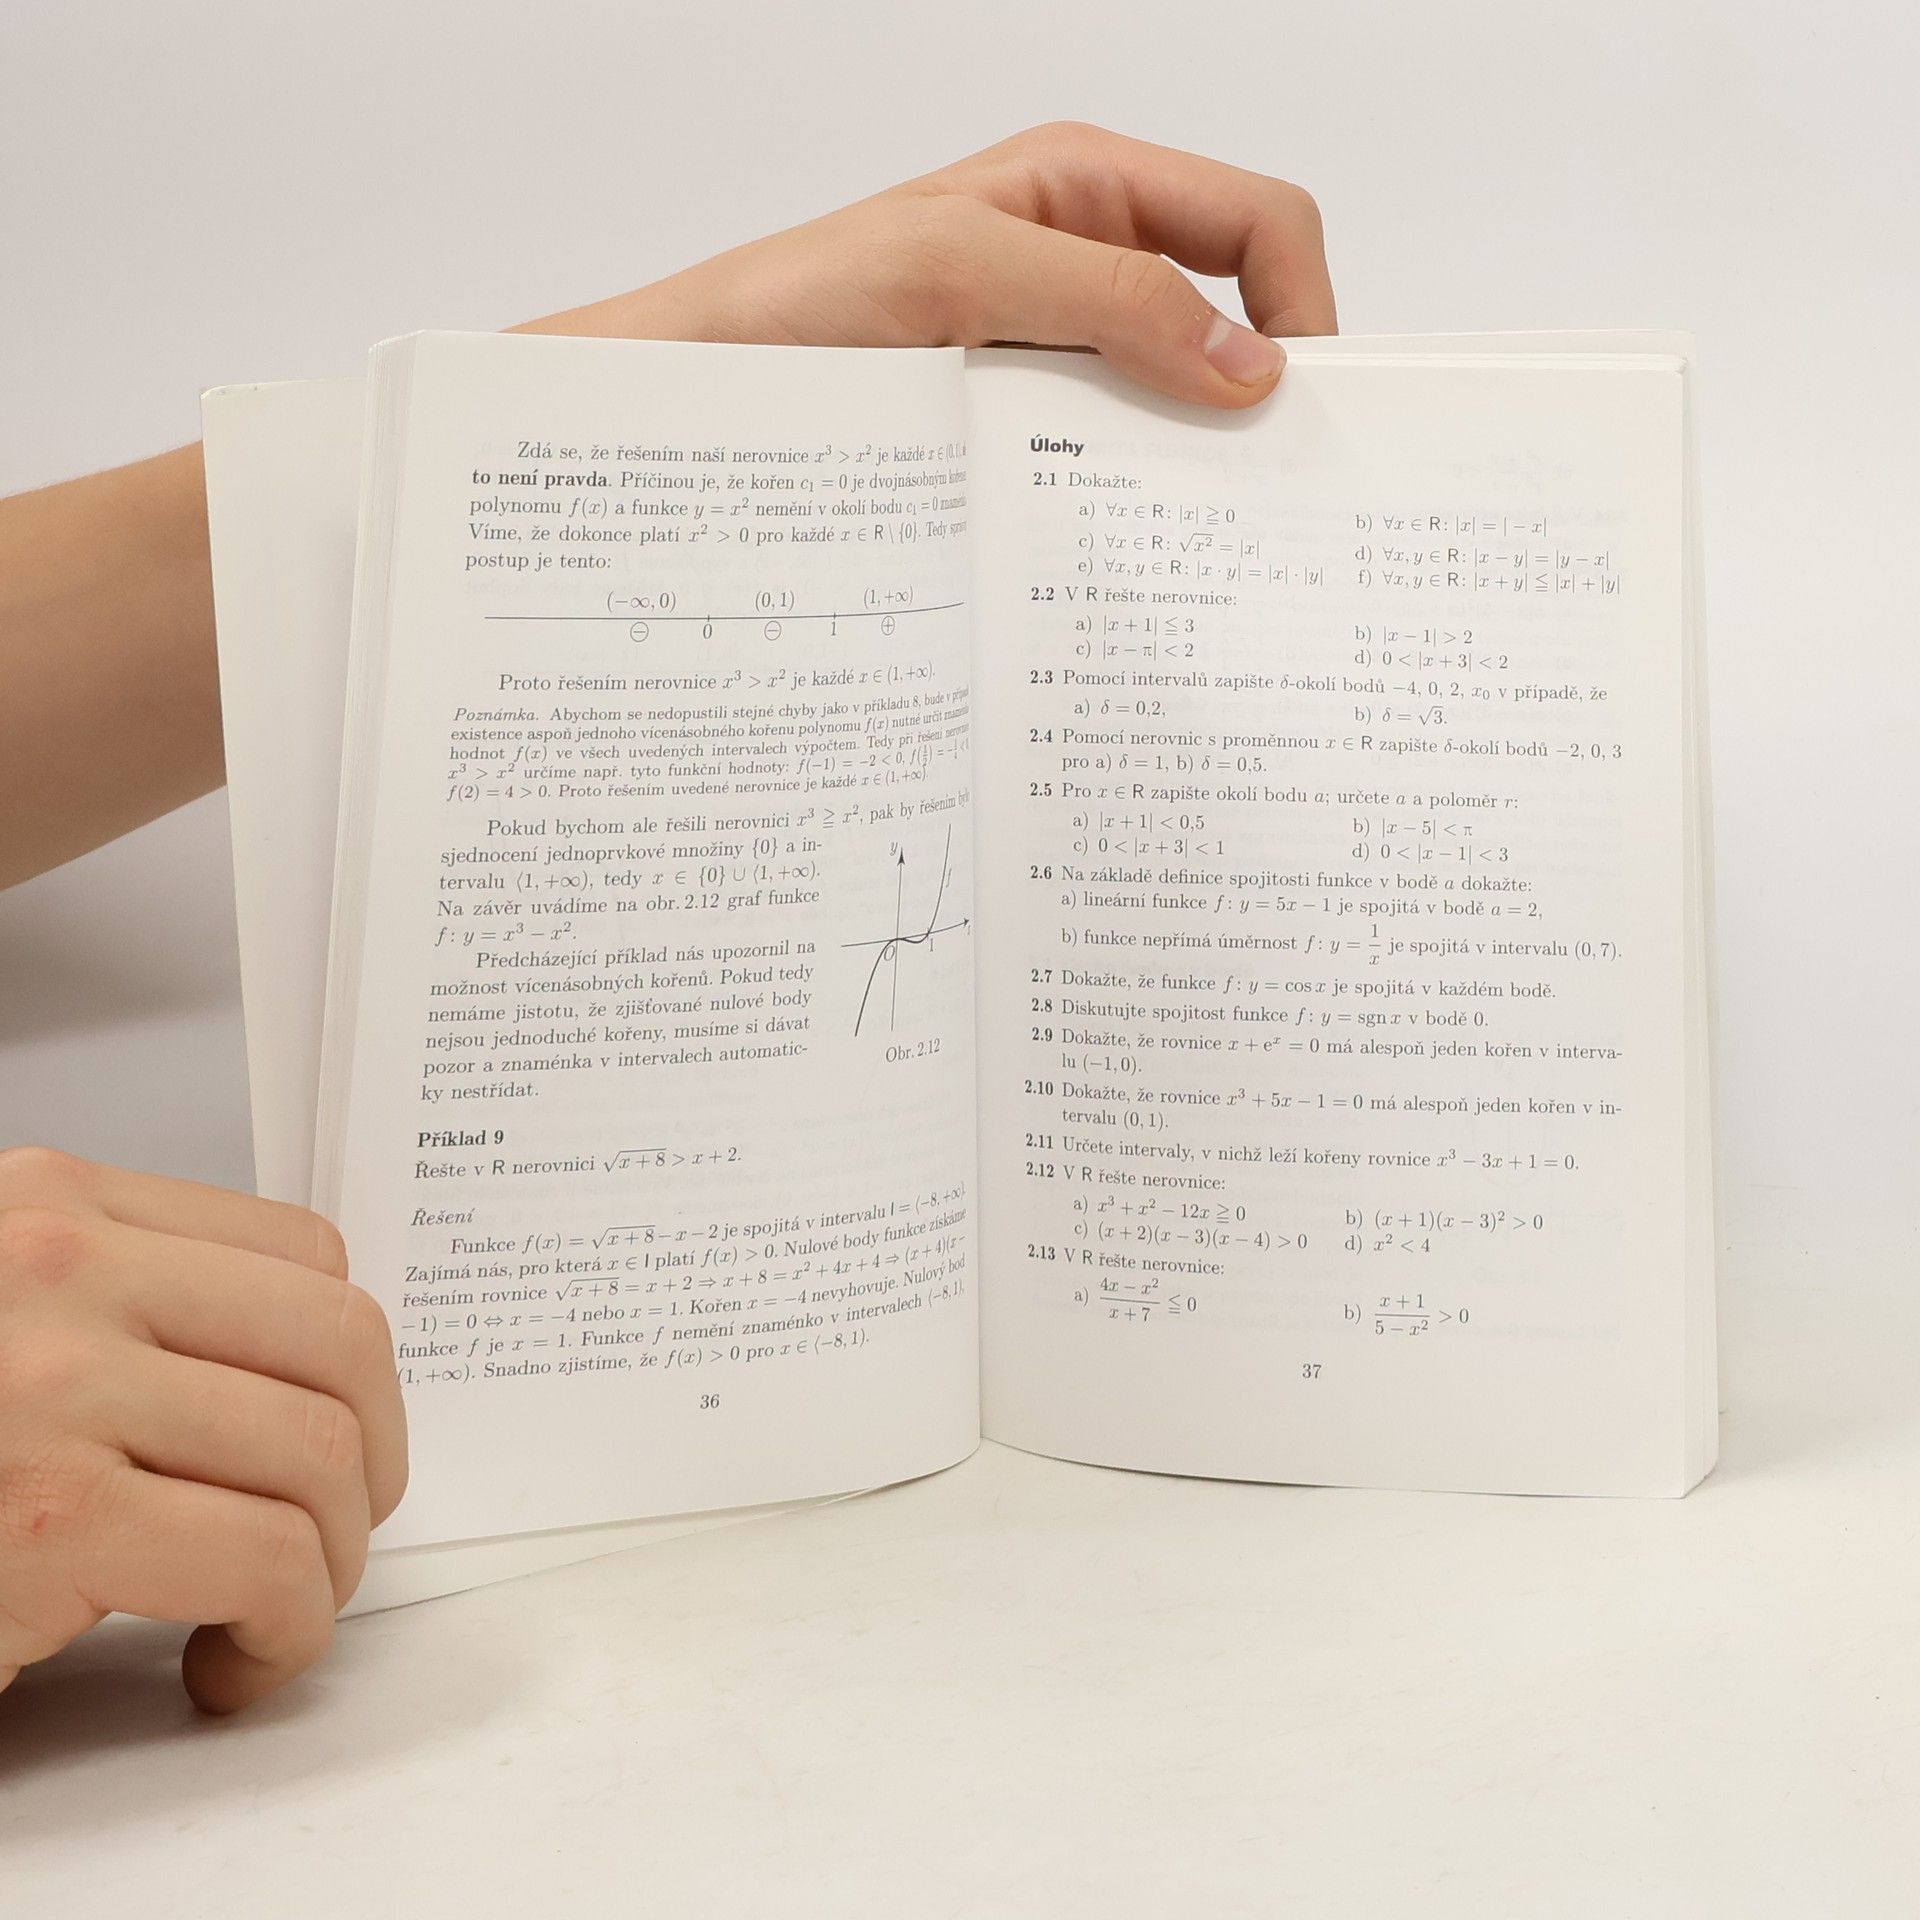 Zdá se, že řešením naší nerovnice x³ > x² je každé x ∈ (0,1),
to není pravda. Příčinou je, že kořen c₁ = 0 je dvojnásobným
polynomu f(x) a funkce y = x² nemění v okolí bodu c₁ = 0
Víme, že dokonce platí x² > 0 pro každé x ∈ R \ {0}. Tedy
postup je tento:
(−∞, 0) (0, 1) (1, +∞)
⊖ 0 ⊖ 1 ⊕
Proto řešením nerovnice x³ > x² je každé x ∈ (1, +∞).
Poznámka. Abychom se nedopustili stejné chyby jako v příkladu 8, bude v
existence aspoň jednoho vícenásobného kořenu polynomu f(x) nutné určit
hodnot f(x) ve všech uvedených intervalech výpočtem. Tedy při řešení
x³ > x² určíme např. tyto funkční hodnoty: f(−1) = −2 < 0,
f(2) = 4 > 0. Proto řešením uvedené nerovnice je každé x ∈ (1, +∞).
Pokud bychom ale řešili nerovnici x³ ≧ x², pak by řešením
sjednocení jednoprvkové množiny {0} a in-
tervalu ⟨1, +∞), tedy x ∈ {0} ∪ ⟨1, +∞).
Na závěr uvádíme na obr. 2.12 graf funkce
f: y = x³ − x².
Předcházející příklad nás upozornil na
možnost vícenásobných kořenů. Pokud tedy
nemáme jistotu, že zjišťované nulové body
nejsou jednoduché kořeny, musíme si dávat
pozor a znaménka v intervalech automatic-
ky nestřídat.
y
f
O 1
Obr. 2.12
Příklad 9
Řešte v R nerovnici √(x + 8) > x + 2.
Řešení
Funkce f(x) = √(x + 8) − x − 2 je spojitá v intervalu I = ⟨−8, +∞).
Zajímá nás, pro která x ∈ I platí f(x) > 0. Nulové body funkce získáme
řešením rovnice √(x + 8) = x + 2 ⇒ x + 8 = x² + 4x + 4 ⇒ (x + 4)(x −
− 1) = 0 ⇔ x = −4 nebo x = 1. Kořen x = −4 nevyhovuje. Nulový bod
funkce f je x = 1. Funkce f nemění znaménko v intervalech ⟨−8, 1),
(1, +∞). Snadno zjistíme, že f(x) > 0 pro x ∈ ⟨−8, 1).
36
Úlohy
2.1 Dokažte:
a) ∀x ∈ R: |x| ≧ 0 b) ∀x ∈ R: |x| = | − x|
c) ∀x ∈ R: √x² = |x| d) ∀x, y ∈ R: |x − y| = |y − x|
e) ∀x, y ∈ R: |x · y| = |x| · |y| f) ∀x, y ∈ R: |x + y| ≦ |x| + |y|
2.2 V R řešte nerovnice:
a) |x + 1| ≦ 3 b) |x − 1| > 2
c) |x − π| < 2 d) 0 < |x + 3| < 2
2.3 Pomocí intervalů zapište δ-okolí bodů −4, 0, 2, x₀ v případě, že
a) δ = 0,2, b) δ = √3.
2.4 Pomocí nerovnic s proměnnou x ∈ R zapište δ-okolí bodů −2, 0, 3
pro a) δ = 1, b) δ = 0,5.
2.5 Pro x ∈ R zapište okolí bodu a; určete a a poloměr r:
a) |x + 1| < 0,5 b) |x − 5| < π
c) 0 < |x + 3| < 1 d) 0 < |x − 1| < 3
2.6 Na základě definice spojitosti funkce v bodě a dokažte:
a) lineární funkce f: y = 5x − 1 je spojitá v bodě a = 2,
b) funkce nepřímá úměrnost f: y = 1/x je spojitá v intervalu (0, 7).
2.7 Dokažte, že funkce f: y = cos x je spojitá v každém bodě.
2.8 Diskutujte spojitost funkce f: y = sgn x v bodě 0.
2.9 Dokažte, že rovnice x + eˣ = 0 má alespoň jeden kořen v interva-
lu (−1, 0).
2.10 Dokažte, že rovnice x³ + 5x − 1 = 0 má alespoň jeden kořen v in-
tervalu (0, 1).
2.11 Určete intervaly, v nichž leží kořeny rovnice x³ − 3x + 1 = 0.
2.12 V R řešte nerovnice:
a) x³ + x² − 12x ≧ 0 b) (x + 1)(x − 3)² > 0
c) (x + 2)(x − 3)(x − 4) > 0 d) x² < 4
2.13 V R řešte nerovnice:
a) (4x − x²)/(x + 7) ≦ 0 b) (x + 1)/(5 − x²) > 0
37